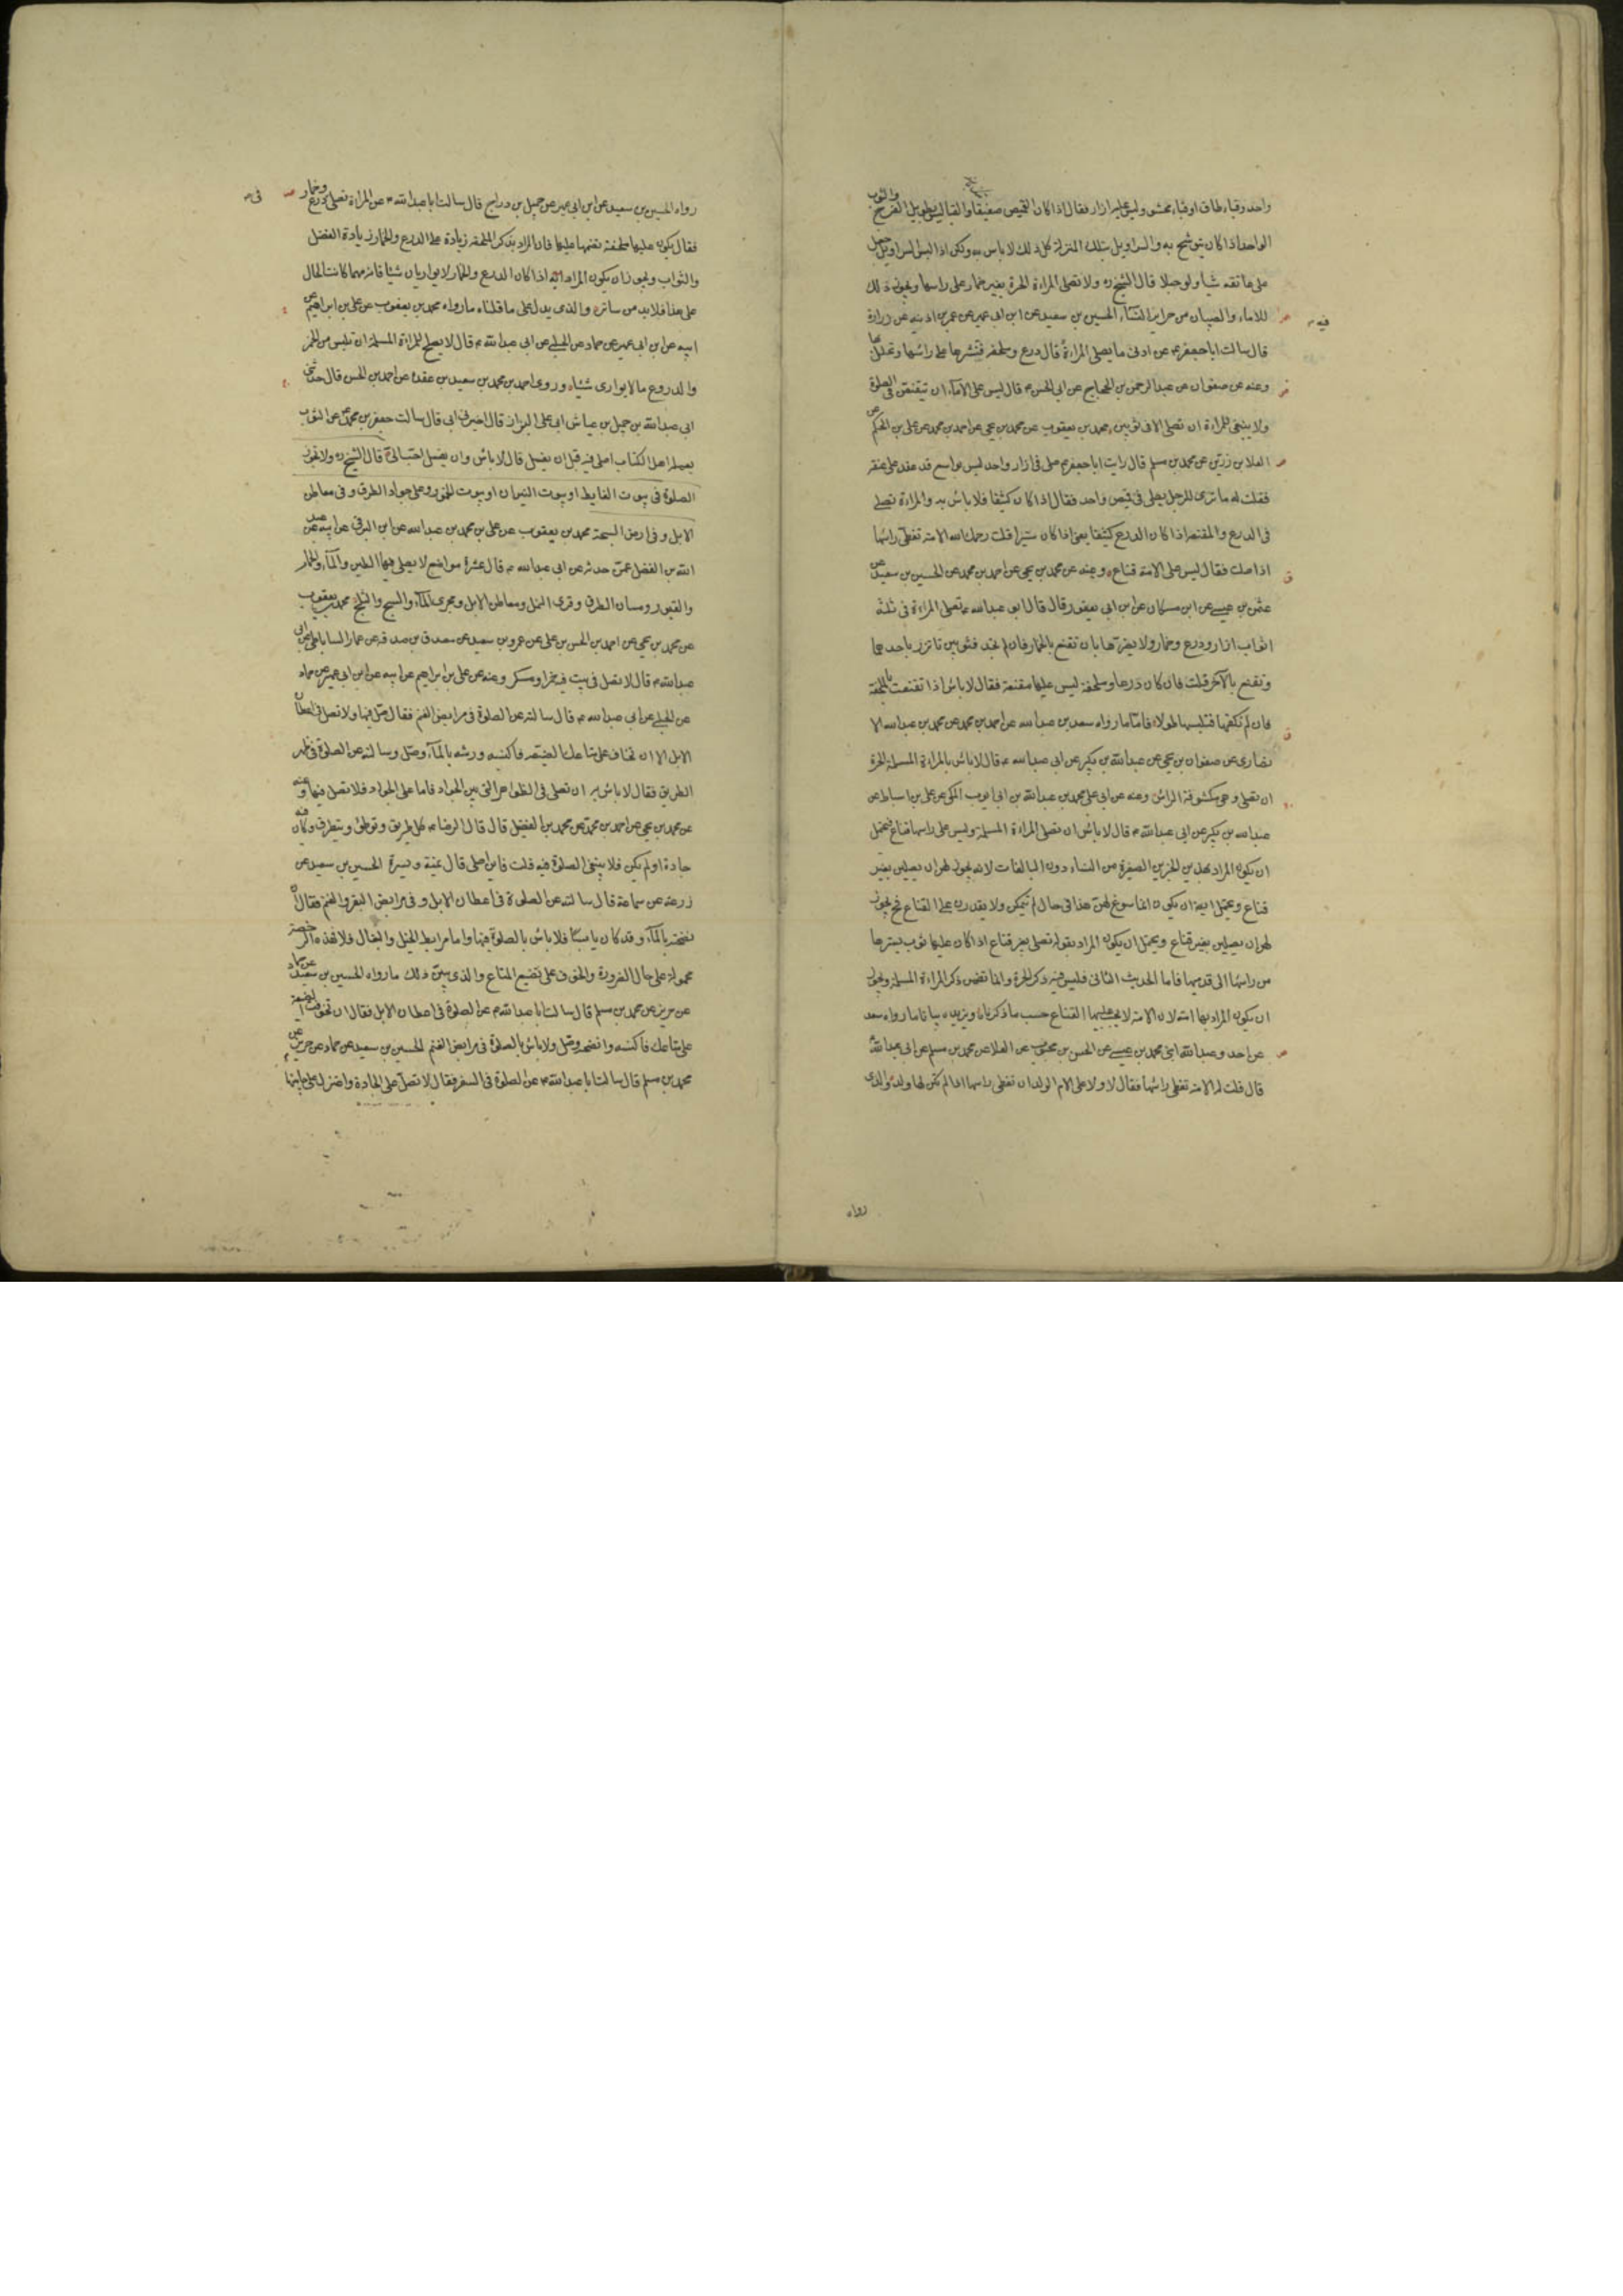 واحد وقباء طاق او قباء محشو وليس عليه ازار فقال اذا كان القميص صفيقا او القبا ليس بطويل الفرج والثوب
الواحد اذا كان يتوشح به والسراويل بتلك المنزلة كل ذلك لا باس به ولكن اذا لبس السراويل جعل
على عاتقه شيئا ولو حبلا قال الشيخ ره ولا تصلى المراءة الحرة بغير خمار على راسها ويجوز ذلك
للاماء والصبيان من حراير النساء الحسين بن سعيد عن ابن ابى عمير عن عمر بن اذينه عن زرارة
قال سالت ابا جعفر ع عن ادنى ما يصلى المراءة قال درع وملحفه فتنشرها على راسها وتجلل بها
وعنه عن صفوان عن عبد الرحمن بن الحجاج عن ابى الحسن ع قال ليس على الاماء ان يتقنعن فى الصلوة
ولا ينبغى للمراءة ان تصلى الا فى ثوبين محمد بن يعقوب عن محمد بن يحيى عن احمد بن محمد عن على بن الحكم عن
العلا بن رزين عن محمد بن مسلم قال رايت ابا جعفر ع صلى فى ازار واحد ليس بواسع قد عقد على عنقه
فقلت له ما ترى للرجل يصلى فى قميص واحد فقال اذا كان كثيفا فلا باس به والمراءة تصلى
فى الدرع والمقنعه اذا كان الدرع كثيفا يعنى اذا كان ستيرا قلت رحمك الله الامة تغطى راسها
اذا صلت فقال ليس على الامة قناع وعنه عن محمد بن يحيى عن احمد بن محمد عن الحسين بن سعيد عن
عثمن بن عيسى عن ابن مسكان عن ابن ابى يعفور قال قال ابو عبدالله ع تصلى المراءة فى ثلثة
اثواب ازار ودرع وخمار ولا يضرها بان تقنع بالخمار فان لم تجد فثوبين تاتزر باحدهما
وتقنع بالآخر قلت فان كان درعا وملحفة ليس عليها مقنعة فقال لا باس اذا تقنعت بالملحفة
فان لم تكفها فتلبسها طولا فاما ما رواه سعد بن عبدالله عن احمد بن محمد عن محمد بن عبدالله الا
نصارى عن صفوان بن يحيى عن عبدالله بن بكير عن ابى عبدالله ع قال لا باس بالمراءة المسلمة الحرة
ان تصلى وهى مكشوفة الراس وعنه عن ابى على محمد بن عبدالله بن ابى ايوب المكى عن على بن اسباط عن
عبدالله بن بكير عن ابى عبدالله ع قال لا باس ان تصلى المراءة المسلمة وليس على راسها قناع فيحتمل
ان يكون المراد بهذين الخبرين الصغيرة من النساء دون البالغات لانه يجوز لهن ان يصلين بغير
قناع ويحتمل ايضا ان يكون انما سوغ لهن هذا فى حال لم يتمكن ولا يقدرن على القناع فح يجوز
لهن ان يصلين بغير قناع ويحتمل ان يكون المراد بقوله تصلى بغير قناع اذا كان عليها ثوب يسترها
من راسها الى قدميها فاما الحديث الثانى فليس فيه ذكر الحرة وانما تضمن ذكر المراءة المسلمة ويجوز
ان يكون المراد بها امة لان الامة لا يجب عليها القناع حسب ما ذكرناه ويزيده بيانا ما رواه سعد
عن احمد وعبدالله ابنى محمد بن عيسى عن الحسن بن محبوب عن العلا عن محمد بن مسلم عن ابى عبدالله ع
قال قلت له الامة تغطى راسها فقال لا ولا على ام الولد ان تغطى راسها اذا لم تكن لها ولد والذى
رواه
رواه الحسين بن سعيد عن ابن ابى عمير عن جميل بن دراج قال سالت ابا عبدالله ع عن المراة تصلى فى درع وخمار
فقال يكون عليها ملحفة تضمها عليها فان المراد بذكر الملحفه زيادة على الدرع والخمار زيادة الفضل
والثواب ويجوز ان يكون المراد به اذا كان الدرع والخمار لا يواريان شيئا فانه مهما كانت الحال
على هذا فلا بد من ساتر والذى يدل على ما قلناه ما رواه محمد بن يعقوب عن على بن ابراهيم عن
ابيه عن ابن ابى عمير عن حماد عن الحلبى عن ابى عبدالله ع قال لا يصلح للمراءة المسلمة ان تلبس من الخمر
والدروع ما لا يوارى شيئا وروى احمد بن محمد بن سعيد بن عقدة عن احمد بن الحسن قال حدثنى
ابى عبدالله بن جميل بن عياش ابى على البزاز قال اخبرنى ابى قال سالت جعفر بن محمد ع عن الثوب
يعمله اهل الكتاب اصلى فيه قبل ان يغسل قال لا باس وان يغسل احب الى قال الشيخ ره ولا تجوز
الصلوة فى بيوت الغايط او بيوت النيران او بيوت الخمور وعلى جواد الطرق وفى معاطن
الابل وفى ارض السبخة محمد بن يعقوب عن على بن محمد بن عبدالله عن ابن البرقى عن ابيه عن عبد
الله بن الفضل عمن حدثه عن ابى عبدالله ع قال عشرة مواضع لا يصلى فيها الطين والماء والحمام
والقبور ومسان الطرق وقرى النمل ومعاطن الابل ومجرى الماء والسبخ والثلج محمد بن يعقوب
عن محمد بن يحيى عن احمد بن الحسن بن على عن عمرو بن سعيد عن مصدق بن صدقه عن عمار الساباطى عن ابى
عبدالله ع قال لا تصل فى بيت فيه خمر او مسكر وعنه عن على بن ابراهيم عن ابيه عن ابن ابى عمير عن حماد
عن الحلبى عن ابى عبدالله ع قال سالته عن الصلوة فى مرابض الغنم فقال صل فيها ولا تصل فى اعطان
الابل الا ان تخاف على متاعك الضيعه فاكنسه ورشه بالماء وصل وسالته عن الصلوة فى ظهر
الطريق فقال لا باس به ان تصلى فى الظواهر التى بين الجواد فاما على الجواد فلا تصل فيها وعنه
عن محمد بن يحيى عن احمد بن محمد عن محمد بن الفضيل قال قال الرضا ع كل طريق يوطئ ويتطرق وكان فيه
جادة او لم يكن فلا ينبغى الصلوة فيه قلت فاين اصلى قال يمنة ويسرة الحسين بن سعيد عن
زرعة عن سماعة قال سالته عن الصلوة فى اعطان الابل وفى مرابض البقر والغنم فقال ان
نضحته بالماء وقد كان يابسا فلا باس بالصلوة فيها واما مرابط الخيل والبغال فلا فهذه الرخصة
محمولة على حال الضرورة والخوف على تضييع المتاع والذى يبين ذلك ما رواه الحسين بن سعيد عن حماد
عن حريز عن محمد بن مسلم قال سالت ابا عبدالله ع عن الصلوة فى اعطان الابل فقال ان تخوفت الضيعة
على متاعك فاكنسه وانضحه وصل ولا باس بالصلوة فى مرابض الغنم الحسين بن سعيد عن حماد عن حريز عن
محمد بن مسلم قال سالت ابا عبدالله ع عن الصلوة فى السفر فقال لا تصل على الجادة واعتزل على جانبيها